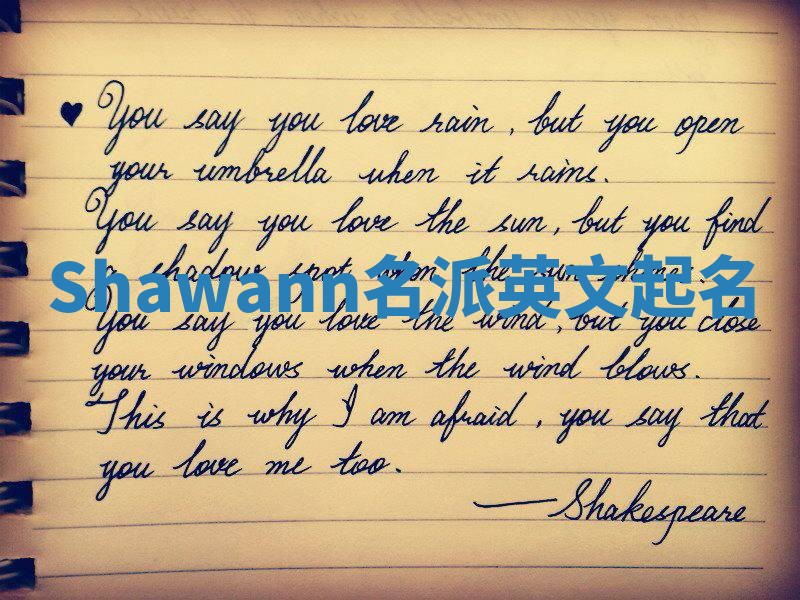 ♥ You say you love rain, but you open
your umbrella when it rains.
You say you love the sun, but you find
a shadow spot when the sun shines.
Shawann名派英文起名
You say you love the wind, but you close
your windows when the wind blows.
This is why I am afraid, you say that
you love me too.
—Shakespeare